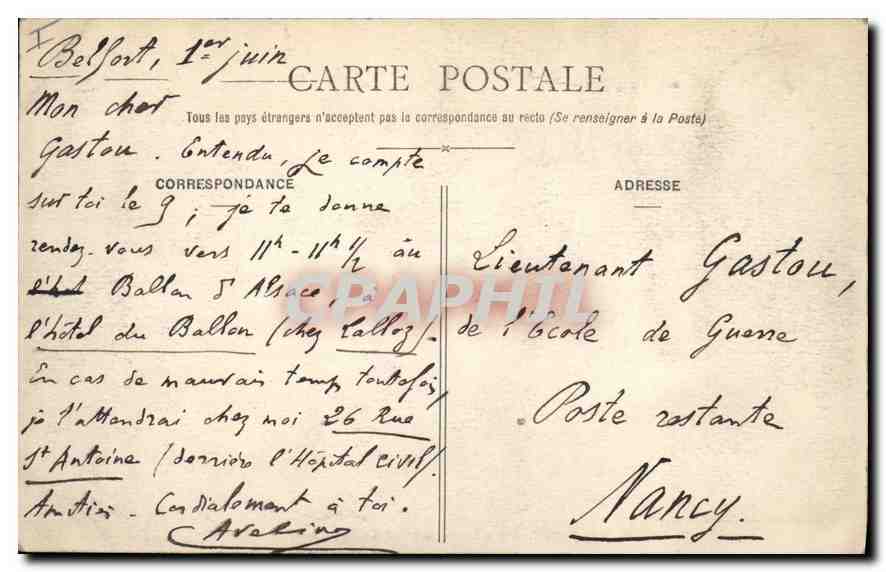 I
Belfort, 1er juin
CARTE POSTALE
Mon cher
Tous les pays étrangers n'acceptent pas la correspondance au recto (Se renseigner à la Poste)
Gastou. Entendu, je compte
CORRESPONDANCE
sur toi le 9 ; je te donne
rendez-vous vers 11h - 11h 1/2 au
l'hot Ballon d'Alsace, à
l'hôtel du Ballon (chez Lalloz).
En cas de mauvais temps toutefois,
je t'attendrai chez moi 26 Rue
St Antoine (derrière l'Hôpital civil).
Amitiés. Cordialement à toi.
ADRESSE
Lieutenant Gastou,
de l'Ecole de Guerre
Poste restante
Nancy.
CPAPHIL